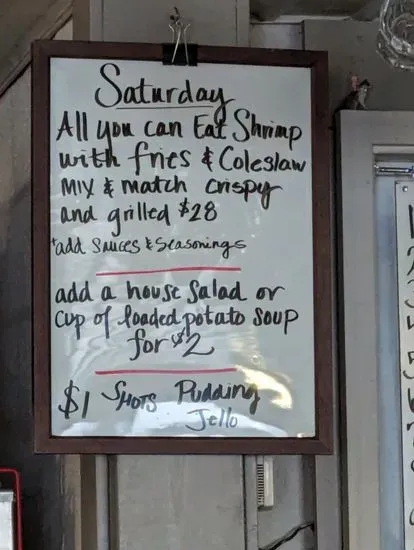 Saturday
All you can Eat Shrimp
with fries & Coleslaw
MIX & match crispy
and grilled $28
*add Sauces & Seasonings
add a house Salad or
cup of loaded potato soup
for $2
$1 SHOTS Pudding
Jello